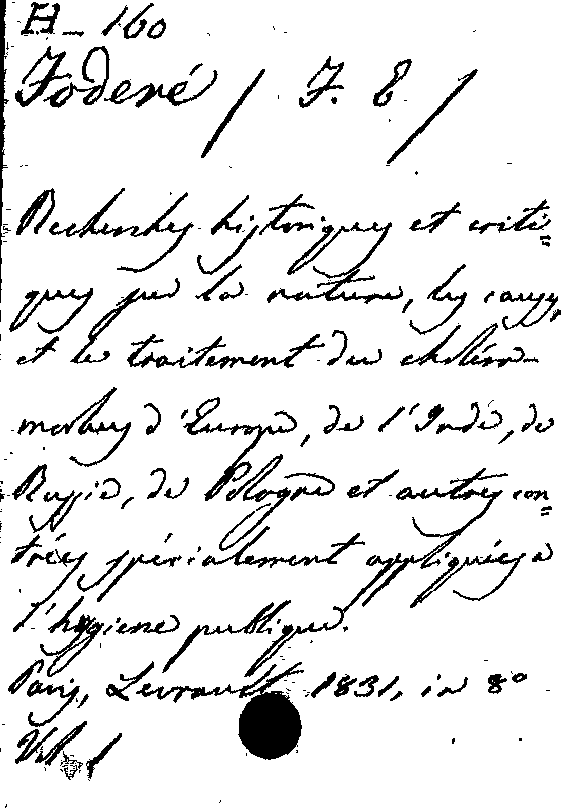 H_ 160
Foderé / F. E /
Recherches historiques et criti=
ques sur la nature, les causes,
et le traitement du choléra-
morbus d'Europe, de l'Inde, de
Russie, de Pologne et autres con=
trées spécialement appliquées a
l'hygiene publique.
Paris, Levrault 1831, in 8º
Vol. 1